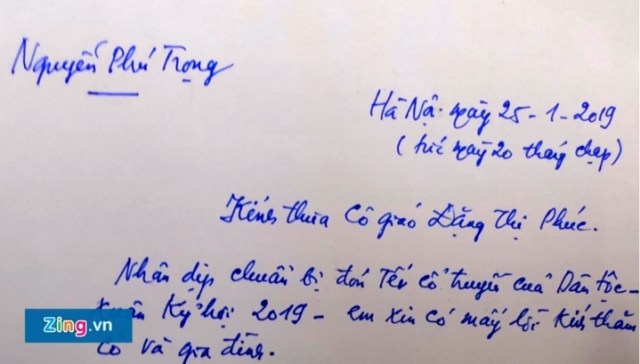 Nguyễn Phú Trọng
Hà Nội: ngày 25-1-2019
(tức ngày 20 tháng chạp)
Kính thưa Cô giáo Đặng Thị Phúc.
Nhân dịp chuẩn bị đón Tết cổ truyền của Dân tộc -
Xuân Kỷ hợi 2019 - em xin có mấy lời Kính thăm
Cô và gia đình.
Zing.vn